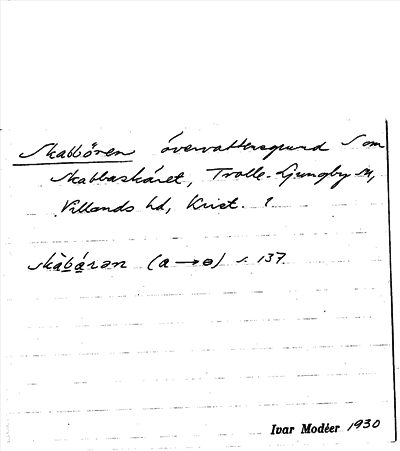 Skabbören övervattensgrund S om
Skabbaskäret, Trolle-Ljungby sn,
Villands hd, Krist. 1
skàbáran (a → ɵ) s. 137
Ivar Modéer 1930